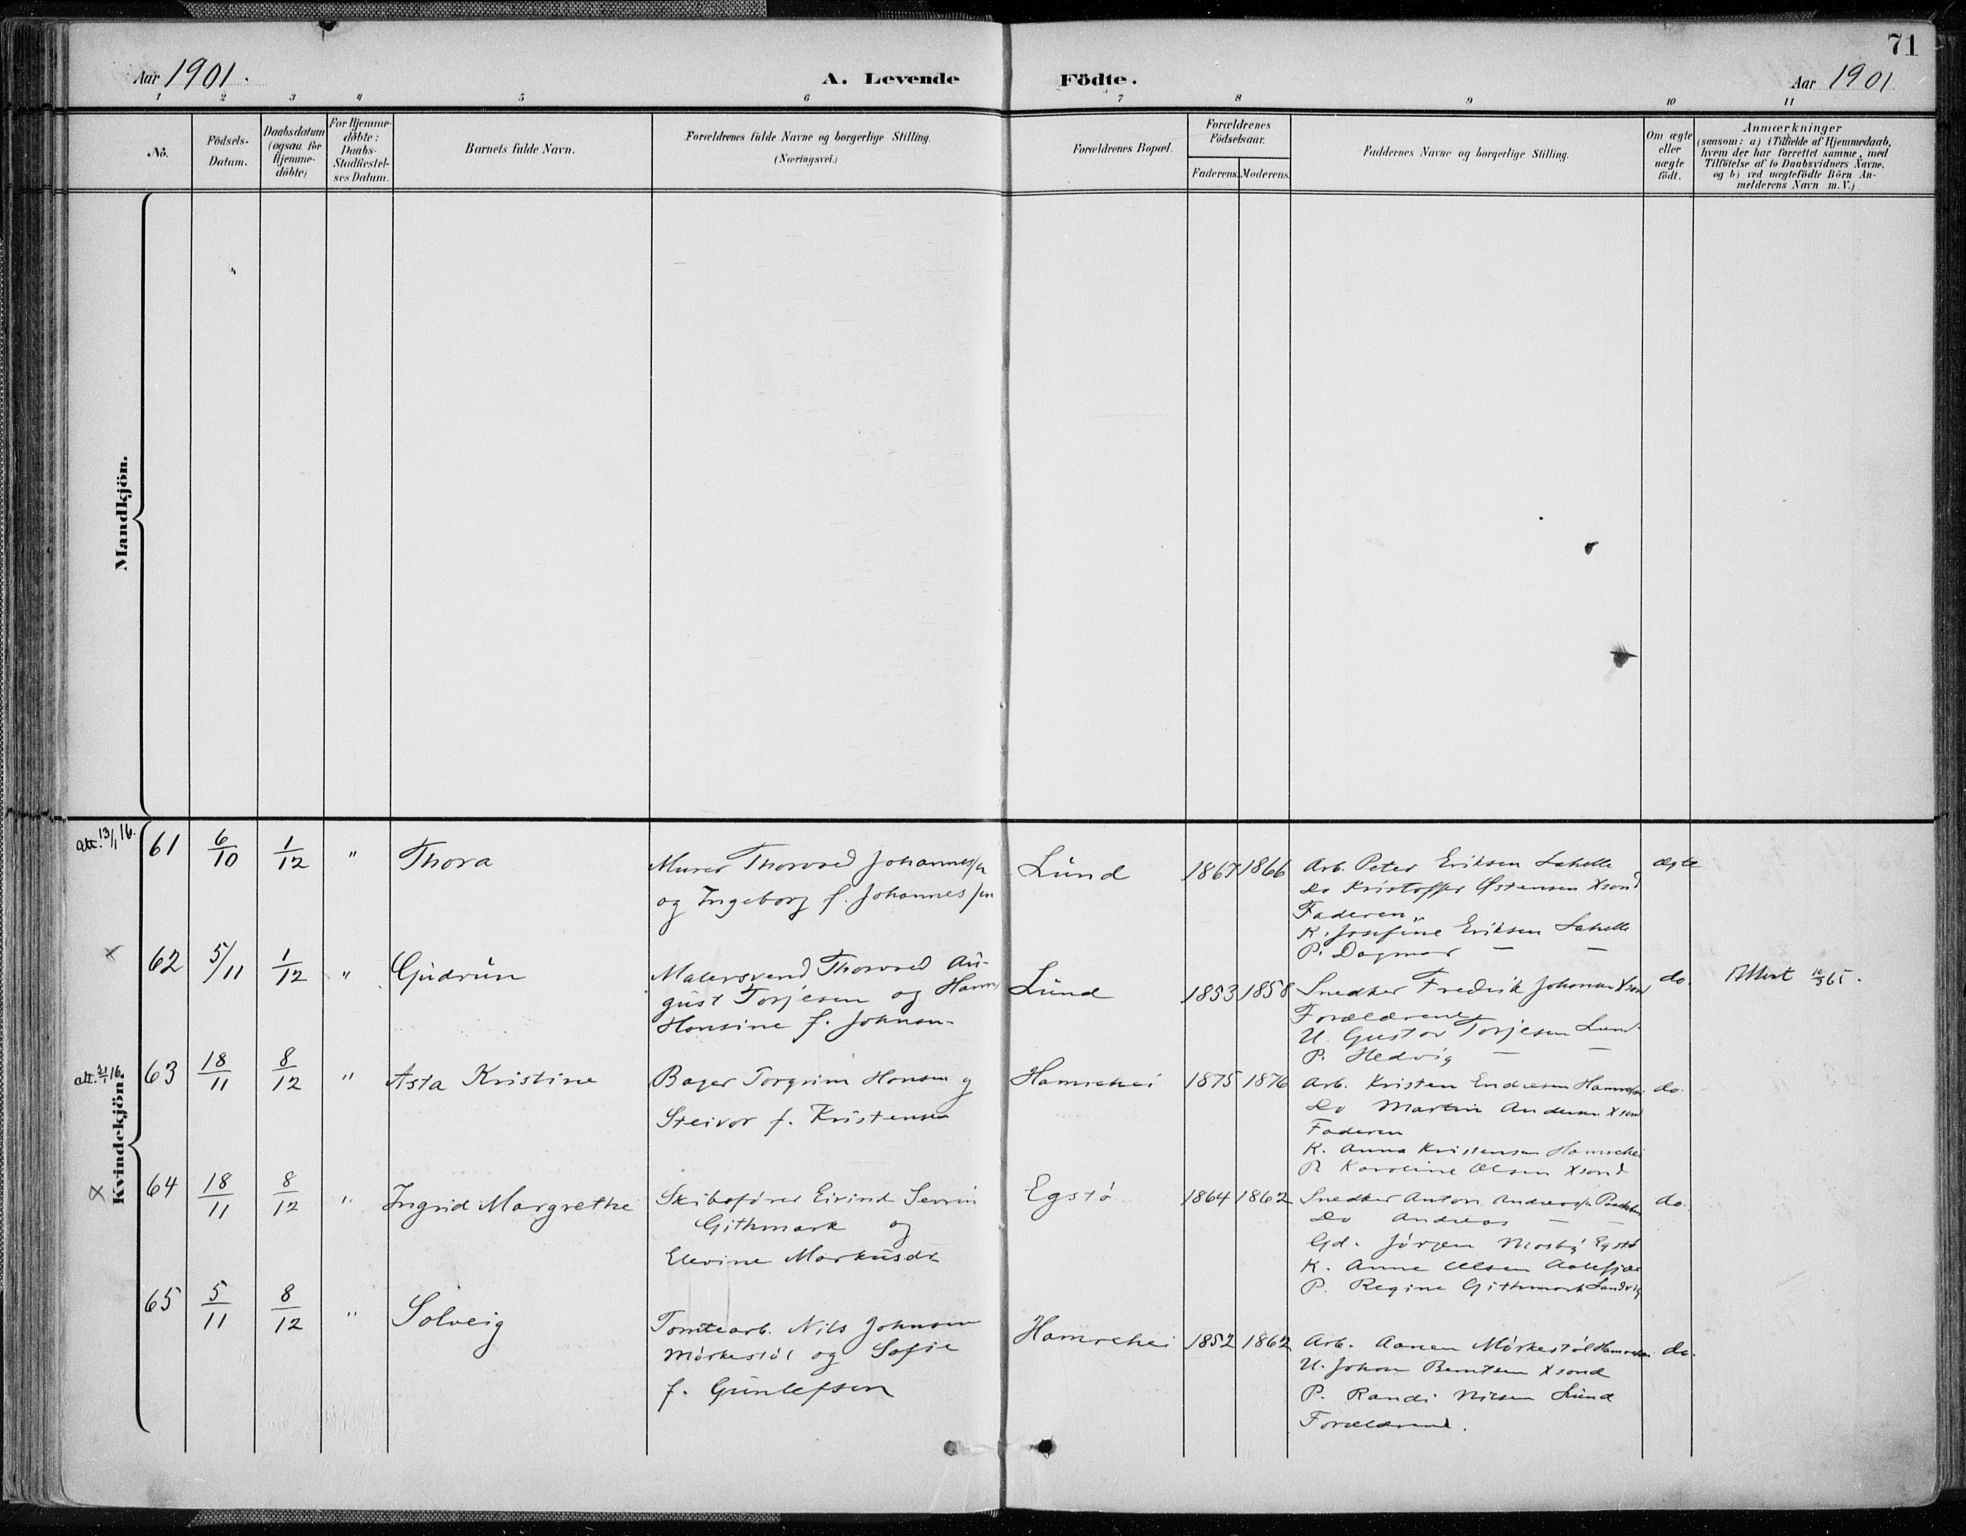 71
Aar 1901.
A. Levende Födte.
Aar 1901
1 2 3 4 5 6 7 8 9 10 11
No.
Födsels-
Datum.
Daabsdatum
(ogsaa for
Hjemme-
döbte)
For Hjemme-
döbte:
Daabs-
Stadfæstel-
ses Datum.
Barnets fulde Navn.
Forældrenes fulde Navne og borgerlige Stilling.
(Næringsvei.)
Forældrenes Bopæl.
Forældrenes
Födselsaar.
Faderens. Moderens.
Faddernes Navne og borgerlige Stilling.
Om ægte
eller
uægte
födt.
Anmærkninger
(saasom: a) i Tilfælde af Hjemmedaab,
hvem der har forrettet samme, med
Tilföielse af to Daabsvidners Navne.
og b) ved uægtefödte Börn An-
melderens Navn m.V.)
Mandkjön.
Kvindekjön.
att. 13/1 16.
61
6/10
1/12
"
Thora
Murer Thorved Johannessen
og Ingeborg f. Johannessen
Lund
1867 1866
Arb. Peter Eriksen Lahelle
Do Kristoffer Østensen Xsand
Faderen
K. Josefine Eriksen Lahelle
P. Dagmar — —
ægte
x
62
5/11
1/12
"
Gudrun
Malersvend Thorved Au-
gust Torjesen og Hanne
Hansine f. Johnsen
Lund
1853 1858
Snedker Fredrik Johansen Xsand
Forældrene
U. Gustav Torjesen Lund
P. Hedvig — —
do.
Attest 10/3 65.
att. 21/1 16.
63
18/11
8/12
"
Asta Kristine
Bager Torgrim Hansen og
Steivor f. Kristensen
Hamrehei
1875 1876
Arb. Kristen Endresen Hamrehei
Do Martin Andersen Xsand
Faderen
K. Anna Kristensen Hamrehei
P. Karoline Olsen Xsand
do.
x
64
18/11
8/12
"
Ingrid Margrethe
Skibsfører Eivind Severin
Githmark og
Elevine Markusdr.
Egstø
1864 1862
Snedker Anton Andreassen
Do Andreas — —
Gd. Jørgen Mosby Egstø
K. Anne Olsen Aalefjær
P. Regine Githmark Sandvig
do.
65
5/11
8/12
"
Solveig
Tomtearb. Nils Johnsen
Mørkestøl og Sofie
f. Gunlefsen
Hamrehei
1852 1862
Arb. Aanen Mørkestøl Hamrehei
U. Johan Berntsen Xsand
P. Randi Nilsen Lund
Forældrene.
do.